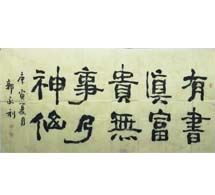 有書
真富
貴無
事乃
神仙
庚寅夏月
郭永利